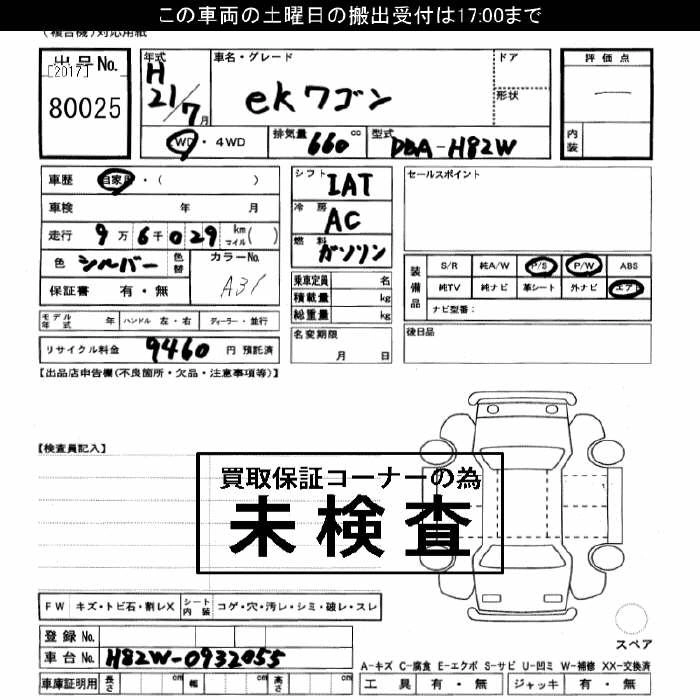 この車両の土曜日の搬出受付は17:00まで
(複合機)対応用紙
出品No.
[2017]
80025
年式 H 21/7月
車名・グレード
ekワゴン
ドア
形状
評価点
—
内装
2WD・4WD
排気量 660 cc
型式 DBA-H82W
車歴 自家用・( )
車検 年 月
走行 9万6千029 km マイル( )
色 シルバー 色替
カラーNo. A31
保証書 有・無
シフト IAT
冷房 AC
燃料 ガソリン
乗車定員 名
積載量 kg
総重量 kg
セールスポイント
装備品
S/R 純A/W P/S P/W ABS
純TV 純ナビ 革シート 外ナビ エアB
ナビ型番:
モデル年式 年 ハンドル 左・右 ディーラー・並行
名変期限 月 日
後日品
リサイクル料金 9460 円 預託済
【出品店申告欄(不良箇所・欠品・注意事項等)】
【検査員記入】
買取保証コーナーの為
未検査
FW キズ・トビ石・割レX シート内装 コゲ・穴・汚レ・シミ・破レ・スレ
登録No.
車台No. H82W-0932055
スペア
A-キズ C-腐食 E-エクボ S-サビ U-凹ミ W-補修 XX-交換済
車庫証明用 長さ cm 幅 cm 高さ cm
工具 有・無 ジャッキ 有・無